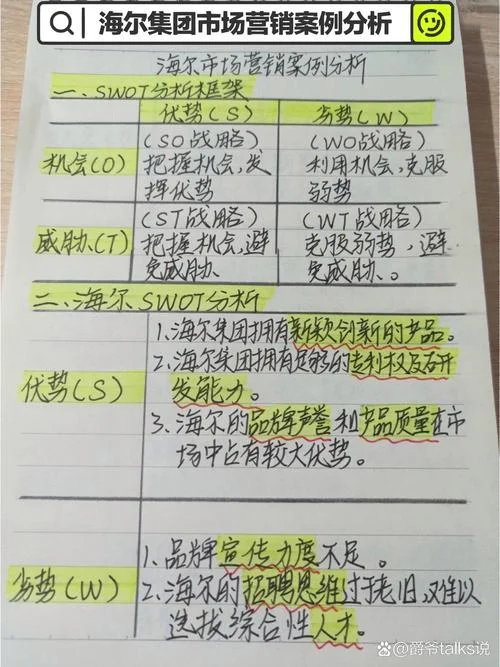 海尔集团市场营销案例分析
海尔市场营销案例分析
一、SWOT分析框架
优势(S) 劣势(W)
机会(O) (SO战略) 把握机会,发挥优势 (WO战略) 利用机会,克服弱势
威胁(T) (ST战略) 把握机会,避免威胁 (WT战略) 克服弱势,避免威胁。
二、海尔SWOT分析
优势(S)
1.海尔集团拥有新颖创新的产品。
2.海尔集团拥有足够的专利权及研
发能力。
3.海尔的品牌声誉和产品质量在市
场中占有较大优势。
劣势(W)
1.品牌宣传力度不足。
2.海尔的招聘思维过于老旧,难以
选拔综合性人才。
@爵爷talks说